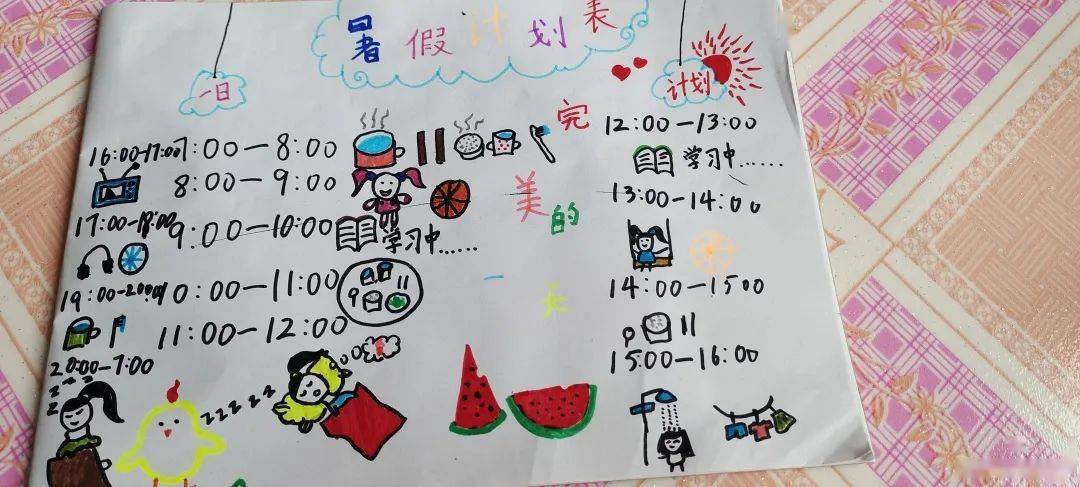 暑假计划表
一日
计划
完美的一天
7:00—8:00
8:00—9:00
9:00—10:00
学习中......
10:00—11:00
11:00—12:00
12:00—13:00
学习中......
13:00—14:00
14:00—1500
15:00—16:00
16:00—17:00
17:00—18:00
19:00—20:00
20:00—7:00
zzz
zzzzz